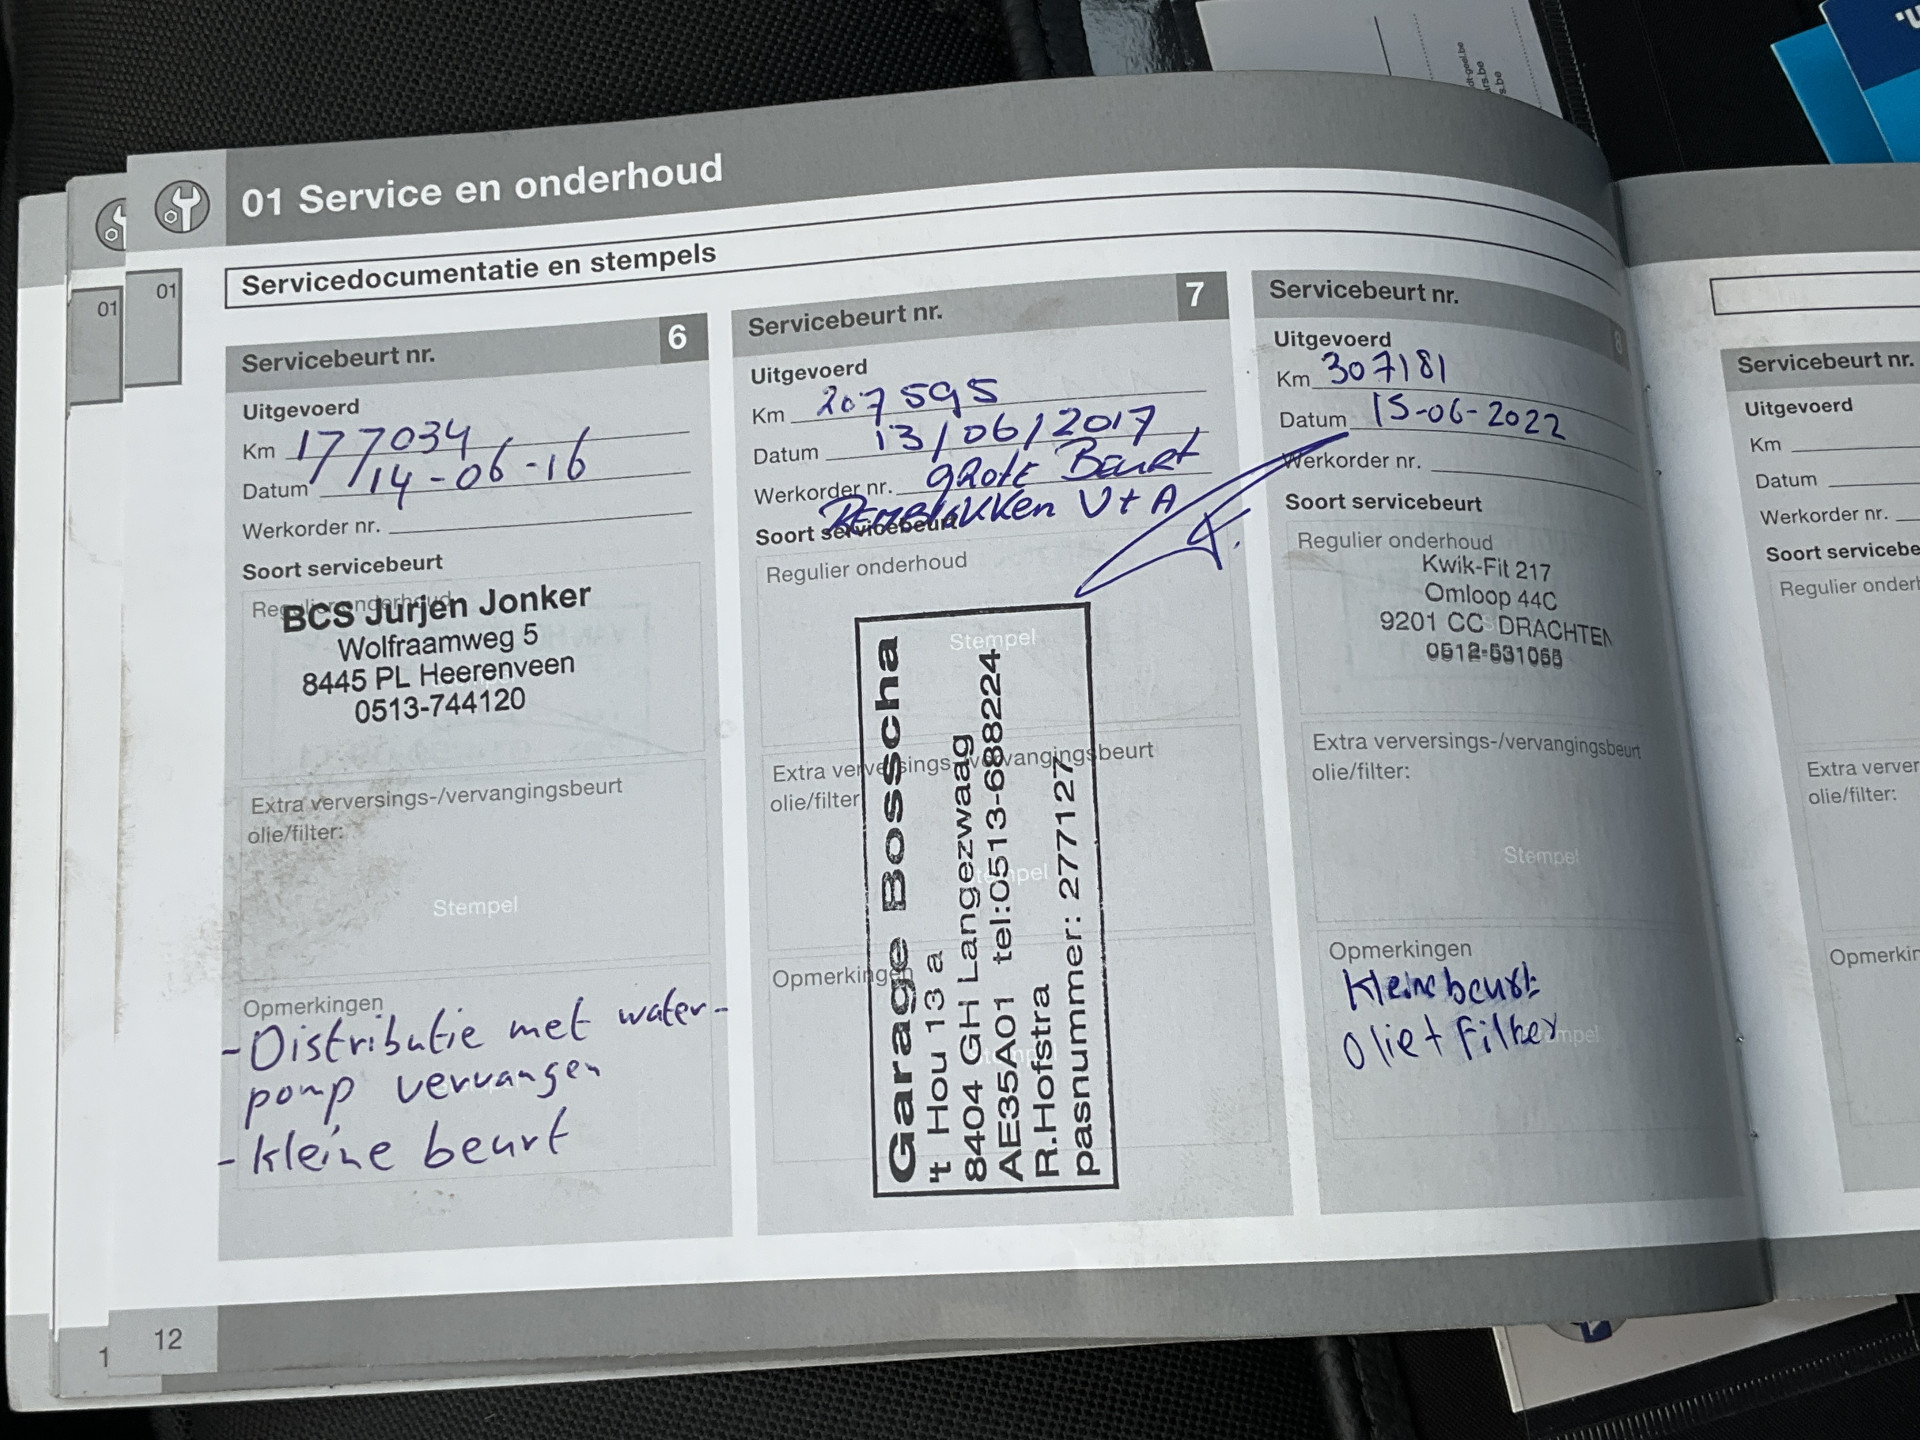 01 Service en onderhoud
Servicedocumentatie en stempels
01
01
Servicebeurt nr. 6
Uitgevoerd
Km 177034
Datum 14-06-16
Werkorder nr.
Soort servicebeurt
Regulier onderhoud
BCS Jurjen Jonker
Wolfraamweg 5
8445 PL Heerenveen
0513-744120
Extra verversings-/vervangingsbeurt
olie/filter:
Stempel
Opmerkingen
- Distributie met water-
pomp vervangen
- kleine beurt
Servicebeurt nr. 7
Uitgevoerd
Km 207595
Datum 13/06/2017
Werkorder nr. grote Beurt
Remblokken V+A
Soort servicebeurt
Regulier onderhoud
Stempel
Extra verversings-/vervangingsbeurt
olie/filter
Stempel
Opmerkingen
Garage Bosscha
't Hou 13 a
8404 GH Langezwaag
AE35A01 tel:0513-688224
R.Hofstra
pasnummer: 277127
Servicebeurt nr. 8
Uitgevoerd
Km 307181
Datum 15-06-2022
Werkorder nr.
Soort servicebeurt
Regulier onderhoud
Kwik-Fit 217
Omloop 44C
9201 CC DRACHTEN
0512-531065
Extra verversings-/vervangingsbeurt
olie/filter:
Stempel
Opmerkingen
Kleine beurt
Olie + Filter
Servicebeurt nr.
Uitgevoerd
Km
Datum
Werkorder nr.
Soort servicebe
Regulier onderh
Extra verver
olie/filter:
Opmerkin
12
1